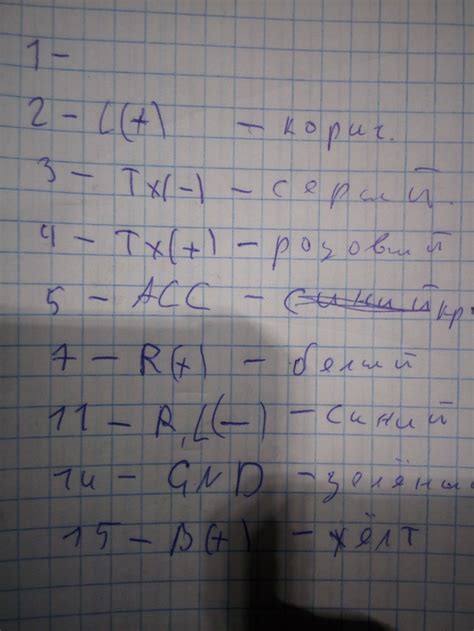 1 -
2 - L(+) - корич.
3 - Tx(-) - серый.
4 - Tx(+) - розовый
5 - ACC - синий кр.
7 - R(+) - белый
11 - R,L(-) - синий
14 - GND - зелёный
15 - B(+) - жёлт